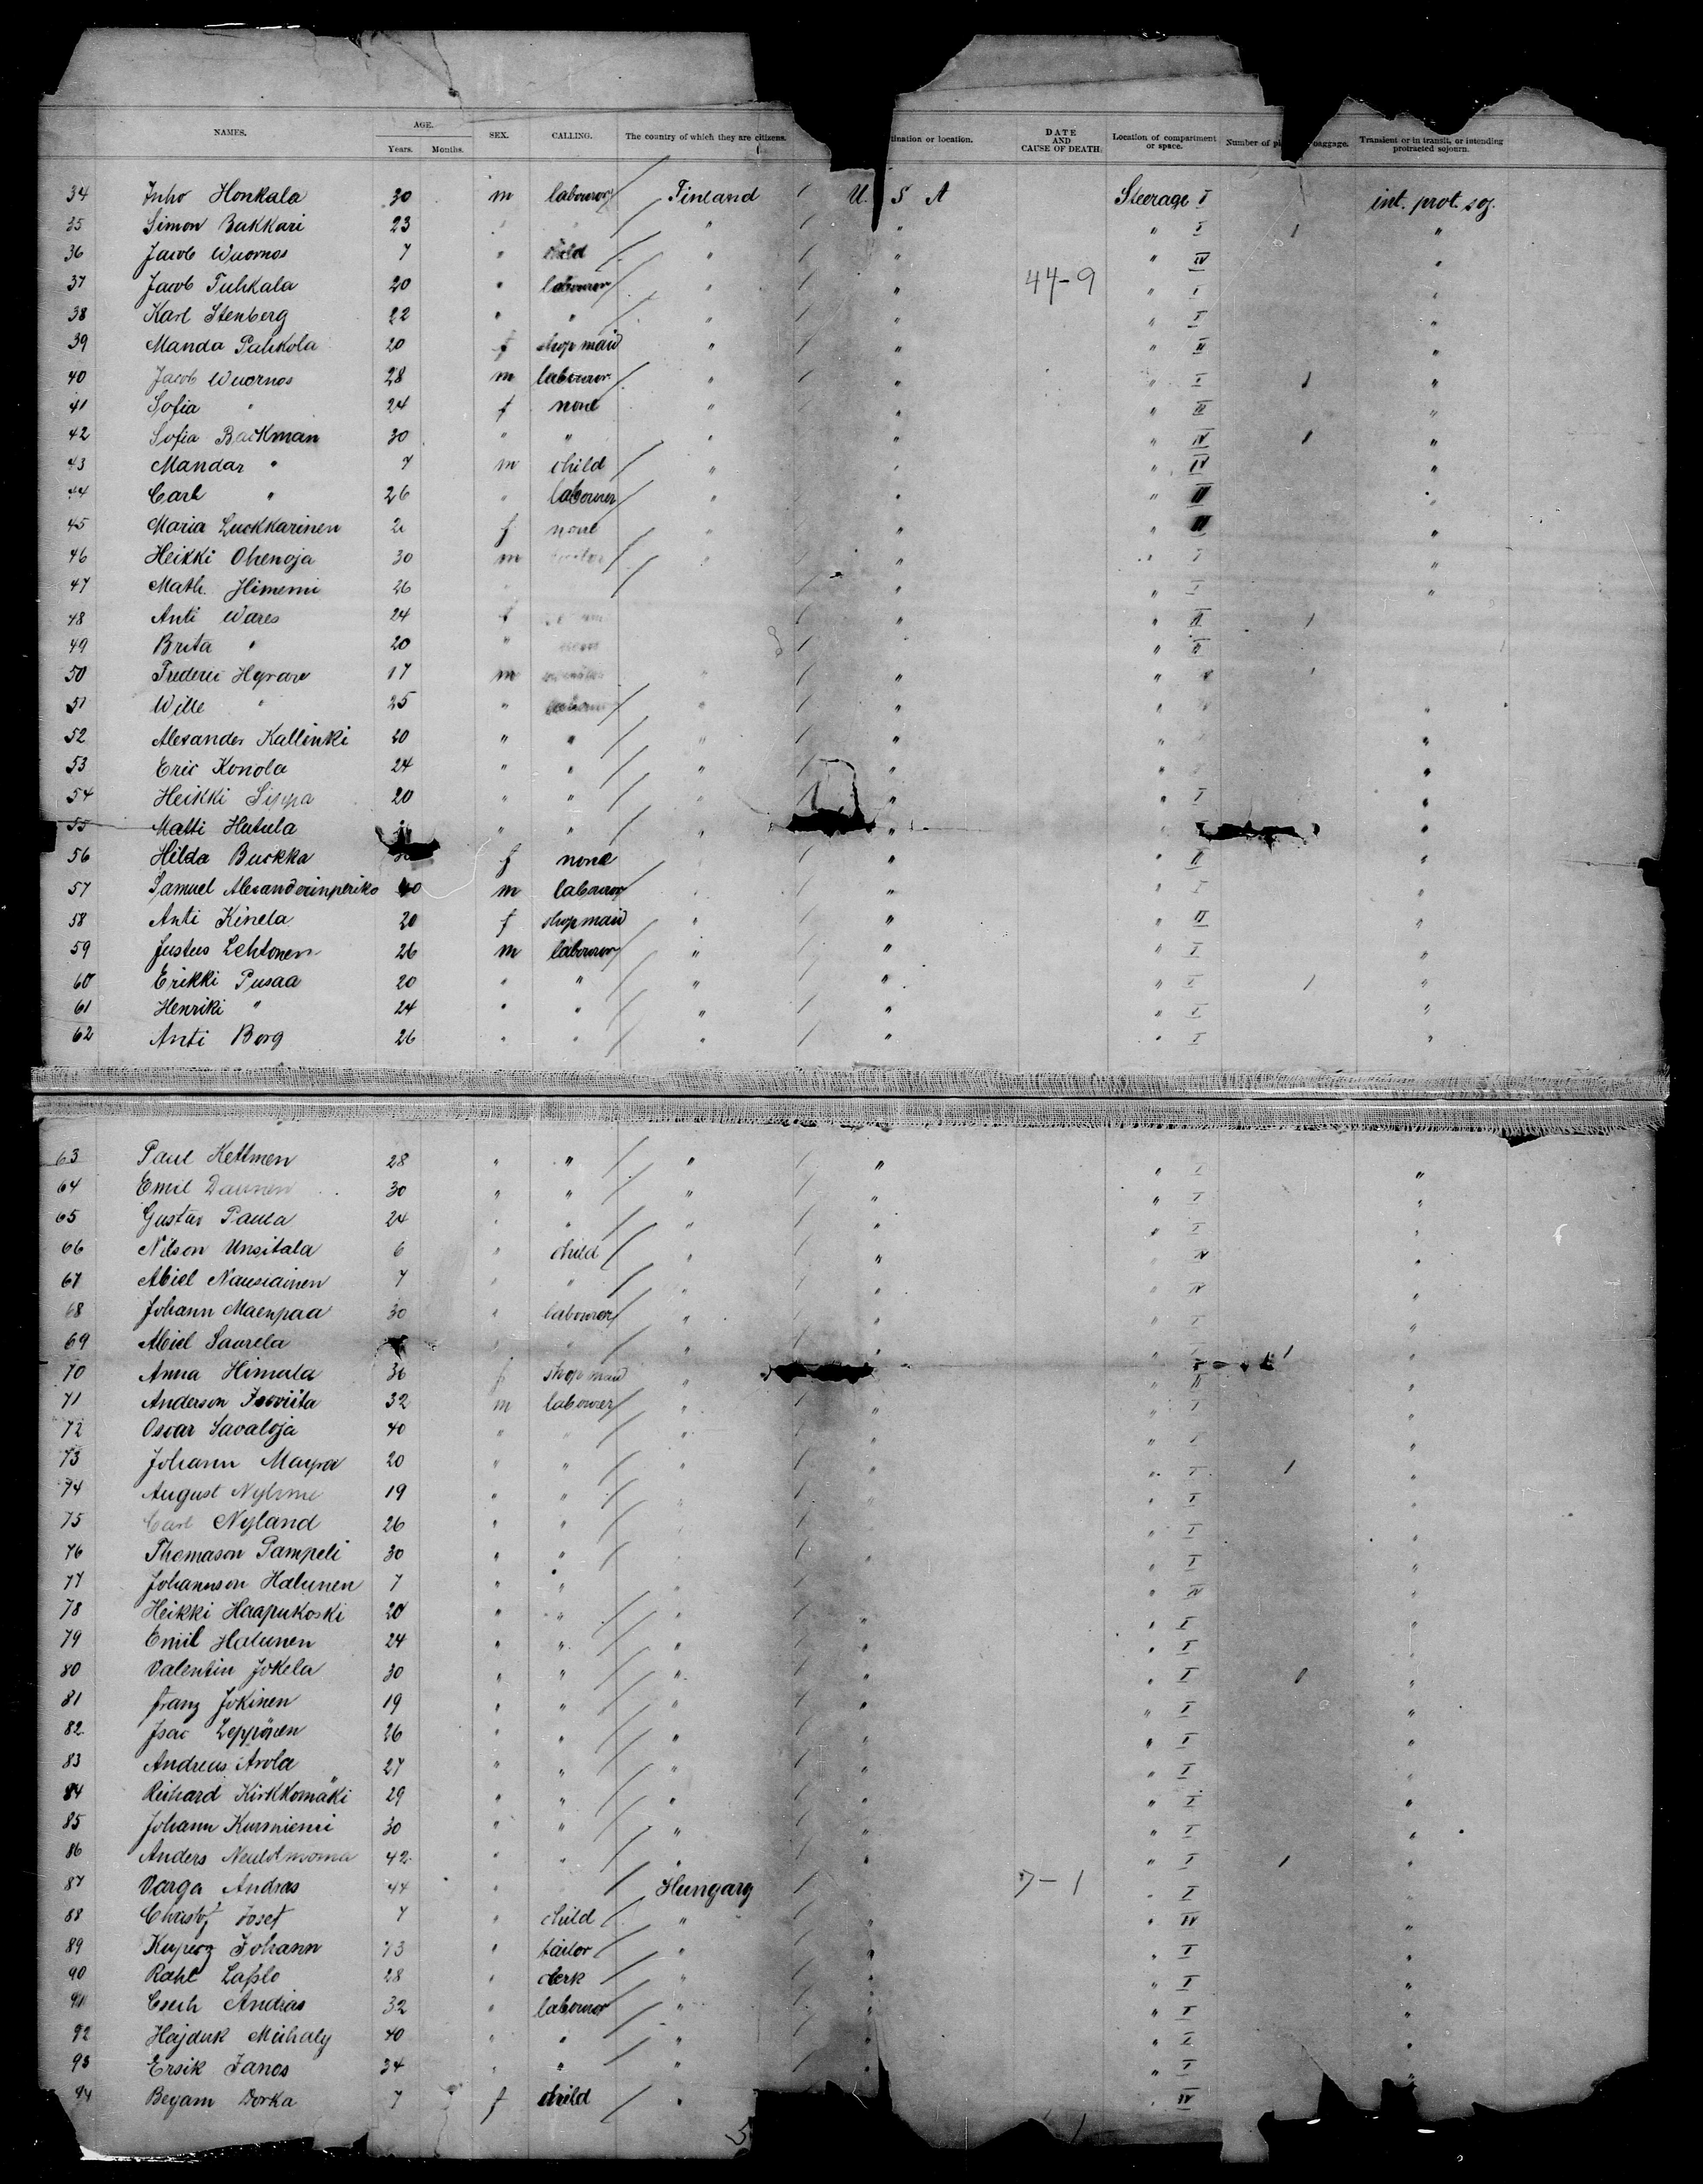 NAMES. AGE. Years. Months. SEX. CALLING. The country of which they are citizens. tination or location. DATE AND CAUSE OF DEATH. Location of compartment or space. Number of pi baggage. Transient or in transit, or intending protracted sojourn.
34 Juho Honkala 30 m labourer Finland U. S A Steerage I int. prot. soj.
35 Simon Bakkari 23 " " " I 1 "
36 Jacob Wuornos 7 " child " " " IV "
37 Jacob Tuhkala 20 " labourer " " 44-9 " I "
38 Karl Stenberg 22 " " " " " I "
39 Manda Pahkola 20 f shop maid " " " II "
40 Jacob Wuornos 28 m labourer " " " I 1 "
41 Sofia " 24 f none " " " III "
42 Sofia Backman 30 " " " " " IV 1 "
43 Mandar " 7 m child " " " IV "
44 Carl " 26 " labourer " " " III "
45 Maria Luckkarinen f none " " " III "
46 Heikki Ohenoja 30 m " " I "
47 Math. Himemi 26 " " I "
48 Anti Wares 24 f " " II 1
49 Brita " 20 " " " II
50 Frederic 17 m " " " 1
51 Wille " 25 " labourer " " " "
52 Alexander Kallinki 20 " " " " " "
53 Eric Konola 24 " " " " " "
54 Heikki Sippa 20 " " " " " I "
55 Matti Hutula " " " " "
56 Hilda Buckka f none " " II "
57 Samuel Alexanderinperiko 40 m labourer " " " I "
58 Anti Kinela 20 f shop maid " " " II "
59 Justus Lehtonen 26 m labourer " " " I "
60 Erikki Pusaa 20 " " " " " I 1 "
61 Henriki " 24 " " " " " I "
62 Anti Borg 26 " " " " " I "
63 Paul Kettmen 28 " " " " " I "
64 Emil Daunen 30 " " " " " I "
65 Gustav Paula 24 " " " " " I "
66 Nilson Unsitala 6 " child " " " IV "
67 Abiel Nausiainen 7 " " " " " IV "
68 Johann Maenpaa 30 " labourer " " " I "
69 Abiel Saarela " " " " " I 1 "
70 Anna Himula 36 f shop maid " " II "
71 Anderson 32 m labourer " " " I "
72 Oscar Savaloja 40 " " " " I "
73 Johann Mayra 20 " " " " " I 1 "
74 August 19 " " " " " I "
75 Carl Nyland 26 " " " I "
76 Thomason Pampeli 30 " " " " I "
77 Johannson Halunen 7 " " " " IV "
78 Heikki Haapukoski 20 " " " " " I "
79 Emil Halunen 24 " " " " " I "
80 Valentin Jokela 30 " " " " " I 1 "
81 Franz Jokinen 19 " " " " " I "
82 Isac Leppönen 26 " " " " " I "
83 Andreas Arola 27 " " " " " I "
84 Richard Kirkkomäki 29 " " " " " I "
85 Johann Kurmiemi 30 " " " " " I "
86 Anders 42 " " " " " I 1 "
87 Varga Andras 44 " Hungary 7-1 " I
88 Josef 7 " child " " IV "
89 Johann " tailor " " " I "
90 Rahl Laßlo 28 " clerk " " " I "
91 Cseh Andras 32 " labourer " " " I "
92 Hajduk Mihaly 40 " " " " " I "
93 Ersik Janos 34 " " " " " I "
94 Begam Dorka 7 f child " " IV
5